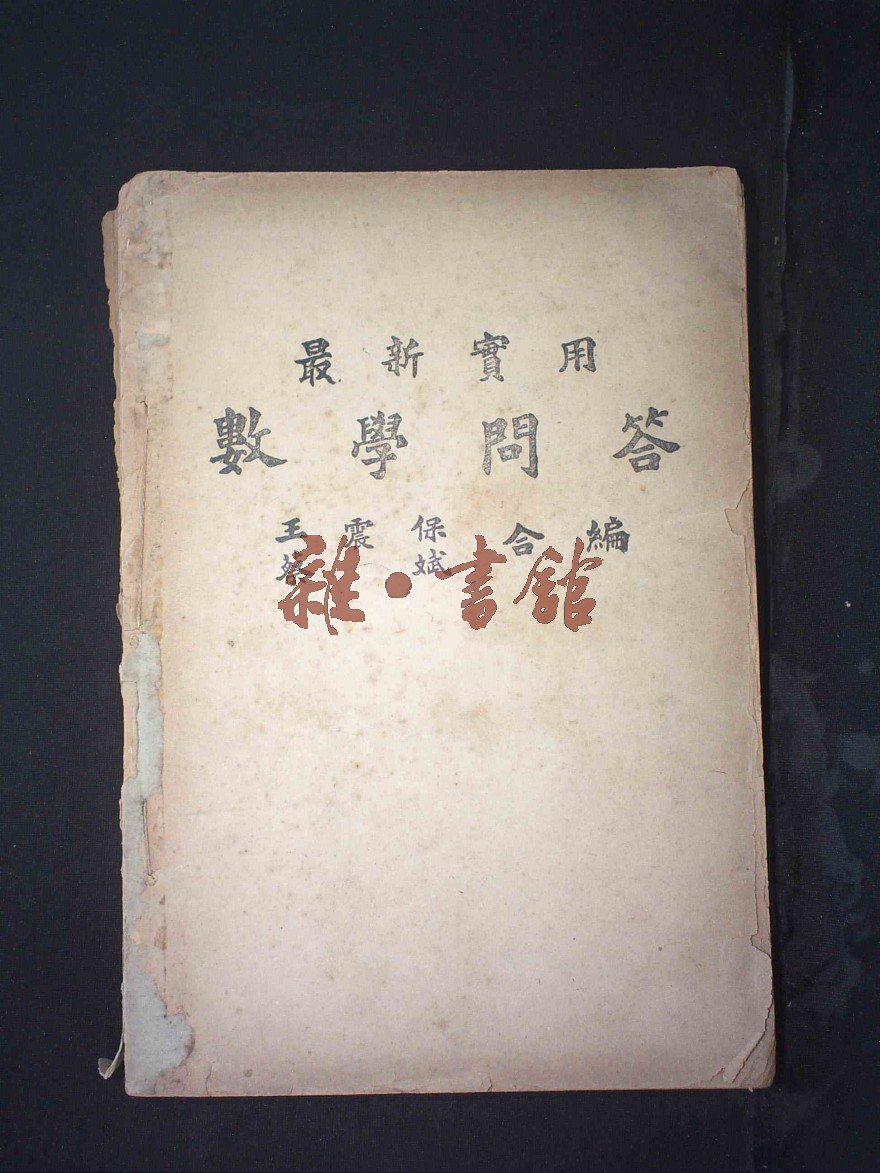 最新實用
數學問答
王震保合編
蔡 斌
雜·書館